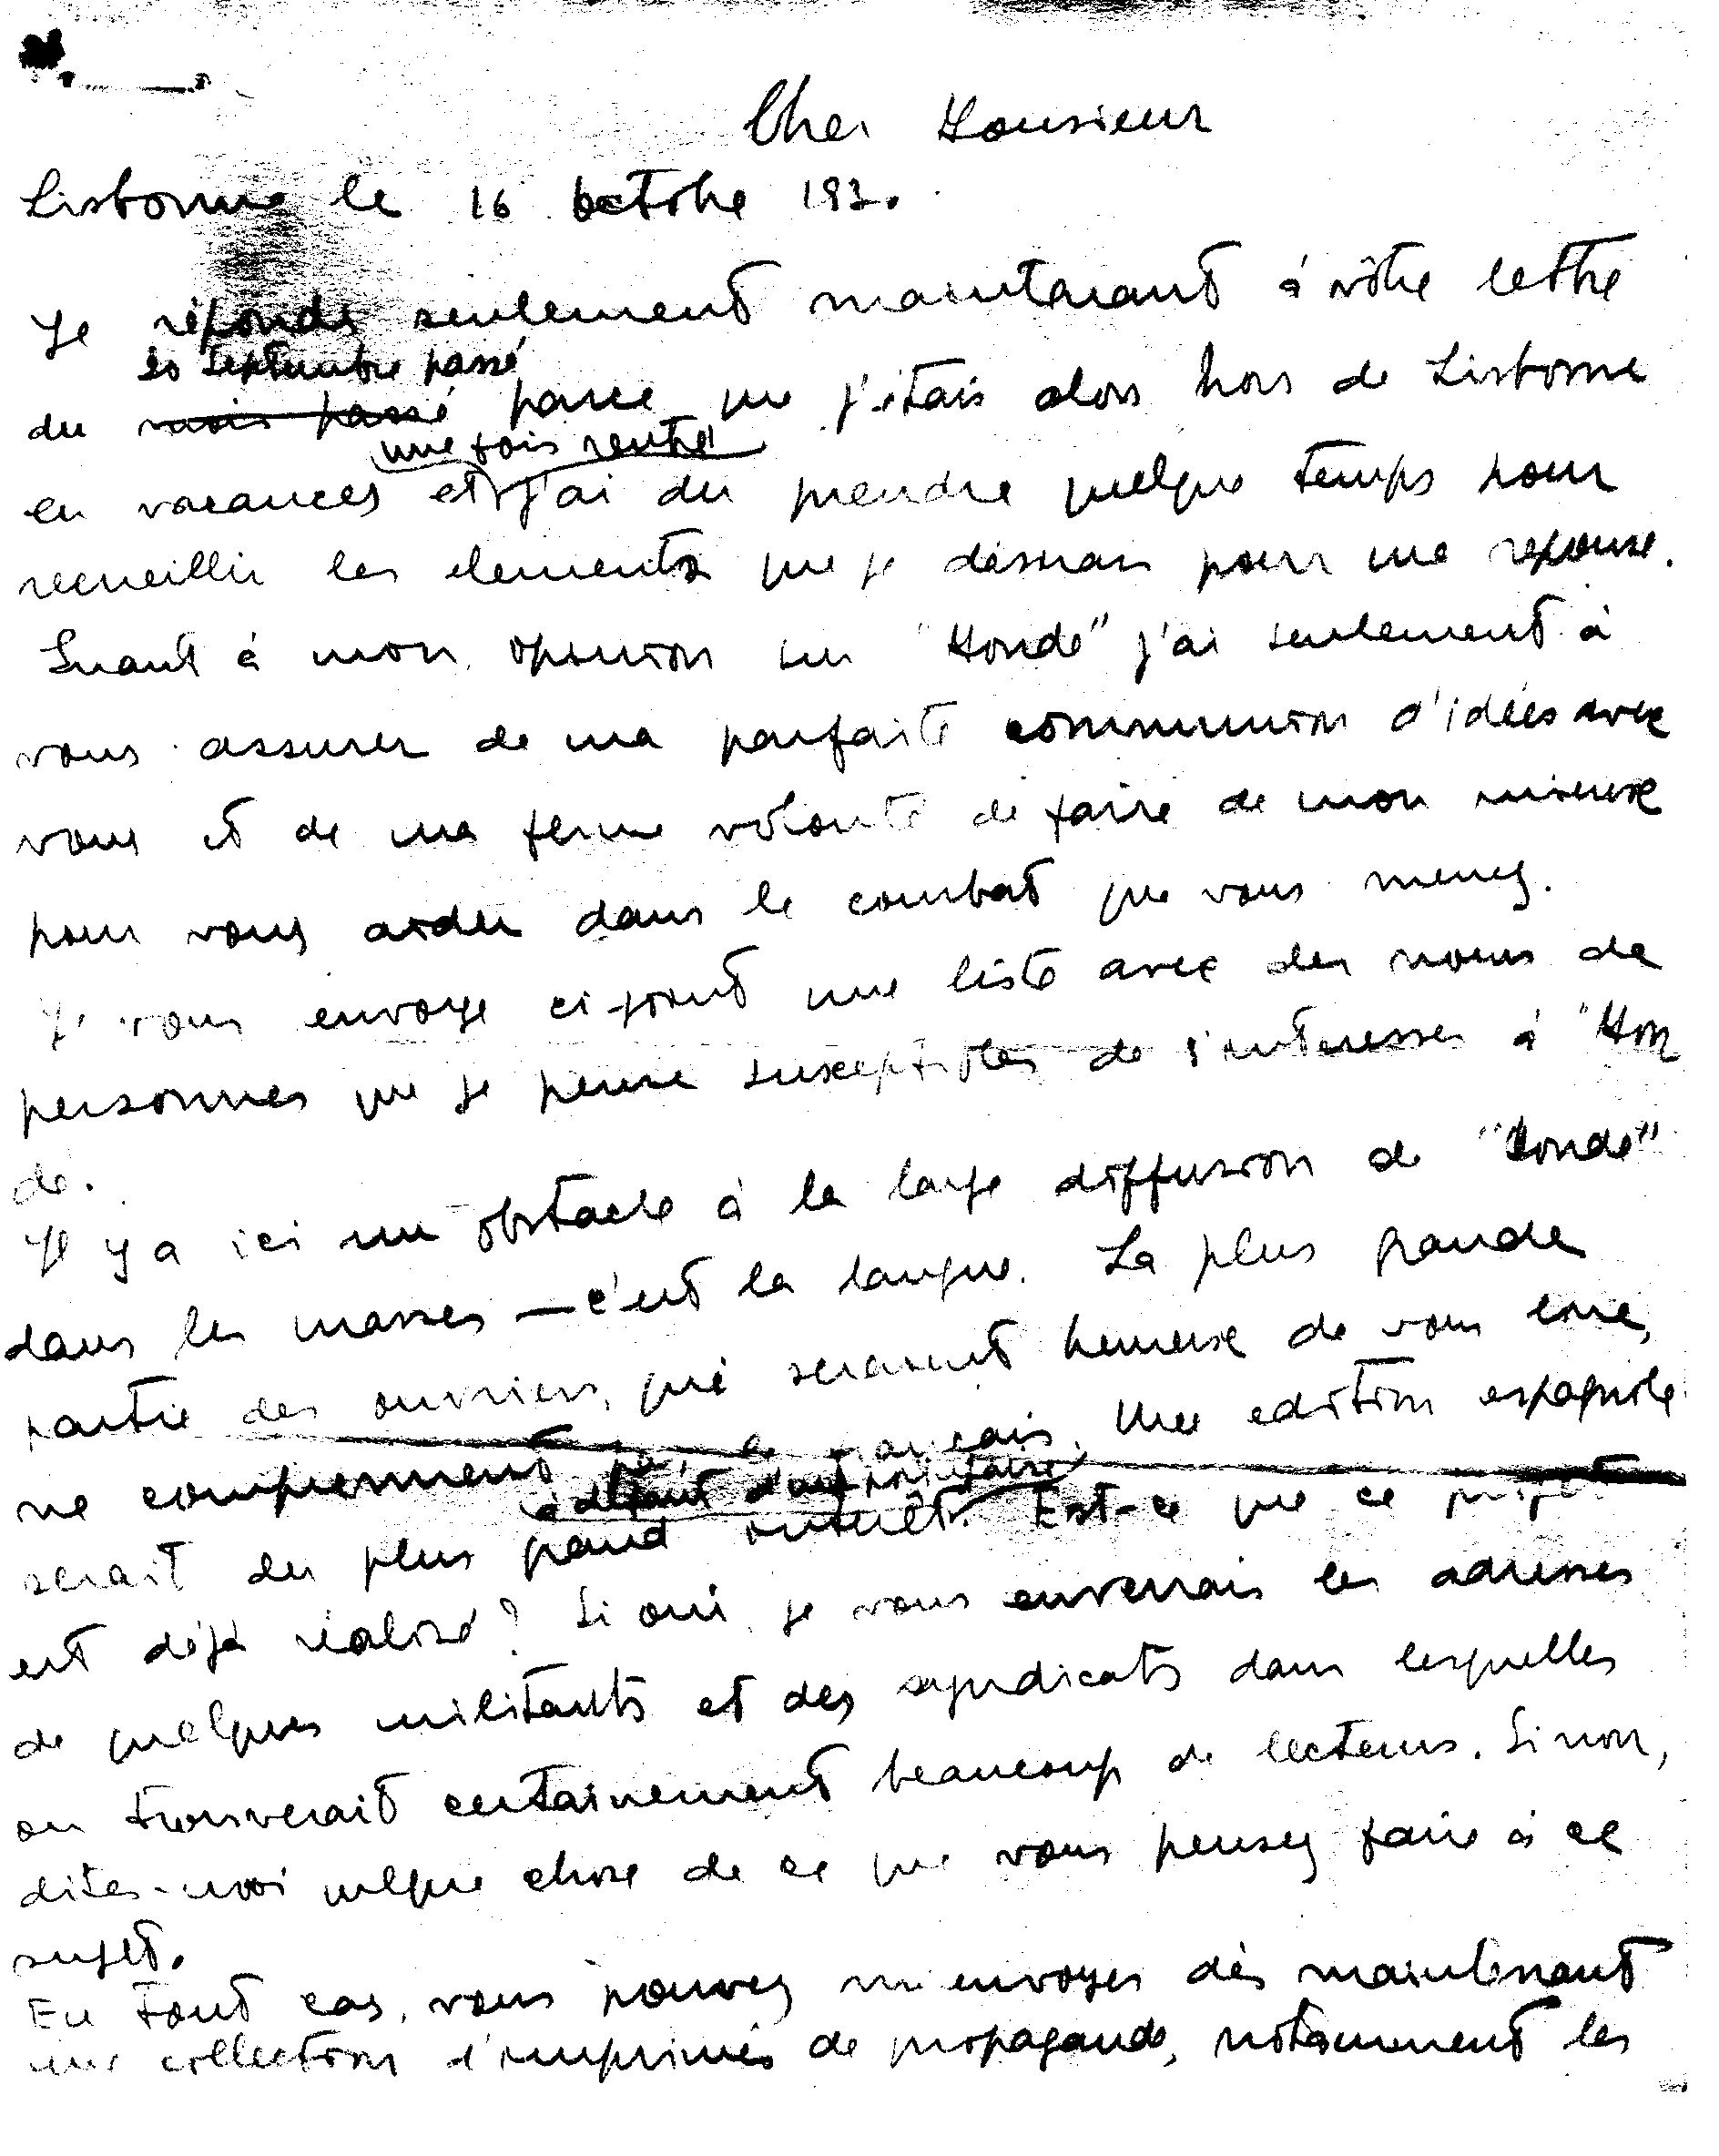 Cher Monsieur
Lisbonne le 16 octobre 193.
Je réponds seulement maintanant à vôtre lettre
20 septembre passé
du mois passé parce que j'étais alors hors de Lisbonne
une fois rentré
en vacances et j'ai du prendre quelque temps pour
recueillir les elements que je désirais pour ma reponse.
Quant à mon opinion sur "Monde" j'ai seulement à
vous assurer de ma parfaite communion d'idées avec
vous et de ma ferme volonté de faire de mon mieux
pour vous aider dans le combat que vous menez.
Je vous envoye ci-joint une liste avec des noms de
personnes que je pense susceptibles de s'interesser à "Mon
de.
Il y a ici un obstacle à la large diffusion de "Monde"
dans les masses — c'est la langue. La plus grande
partie des ouvriers, qui seraient heureux de vous lire,
ne comprennent pas le français. Une edition espagnole
à défaut d'une
serait du plus grand intérêt. Est-ce que ce projet
est déjà réalisé? Si oui, je vous enverrais les adresses
de quelques militants et des syndicats dans lesquelles
on trouverait certainement beaucoup de lecteurs. Si non,
dites-moi quelque chose de ce que vous pensez faire à ce
sujet.
En tout cas, vous pouvez m'envoyer dès maintenant
une collection d'imprimés de propagande, notamment les